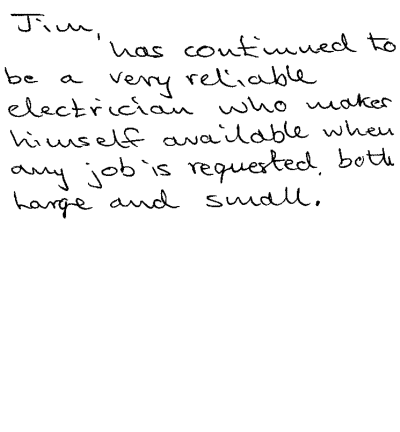 Jim,
has continued to
be a very reliable
electrician who makes
himself available when
any job is requested, both
large and small.